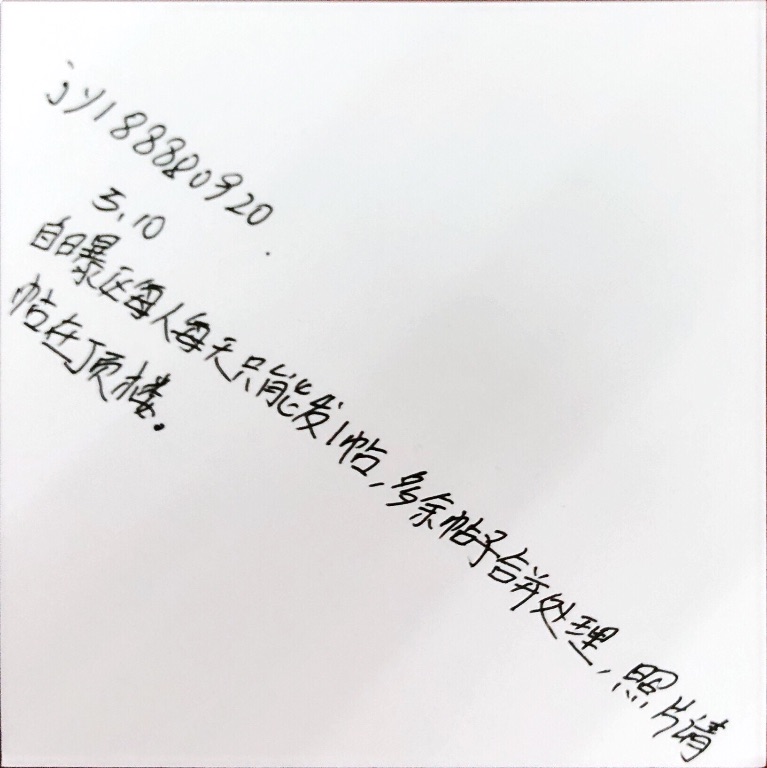 jy188880920.
3.10
自曝区每人每天只能发1帖,多余帖子合并处理,照片请
帖在顶楼.